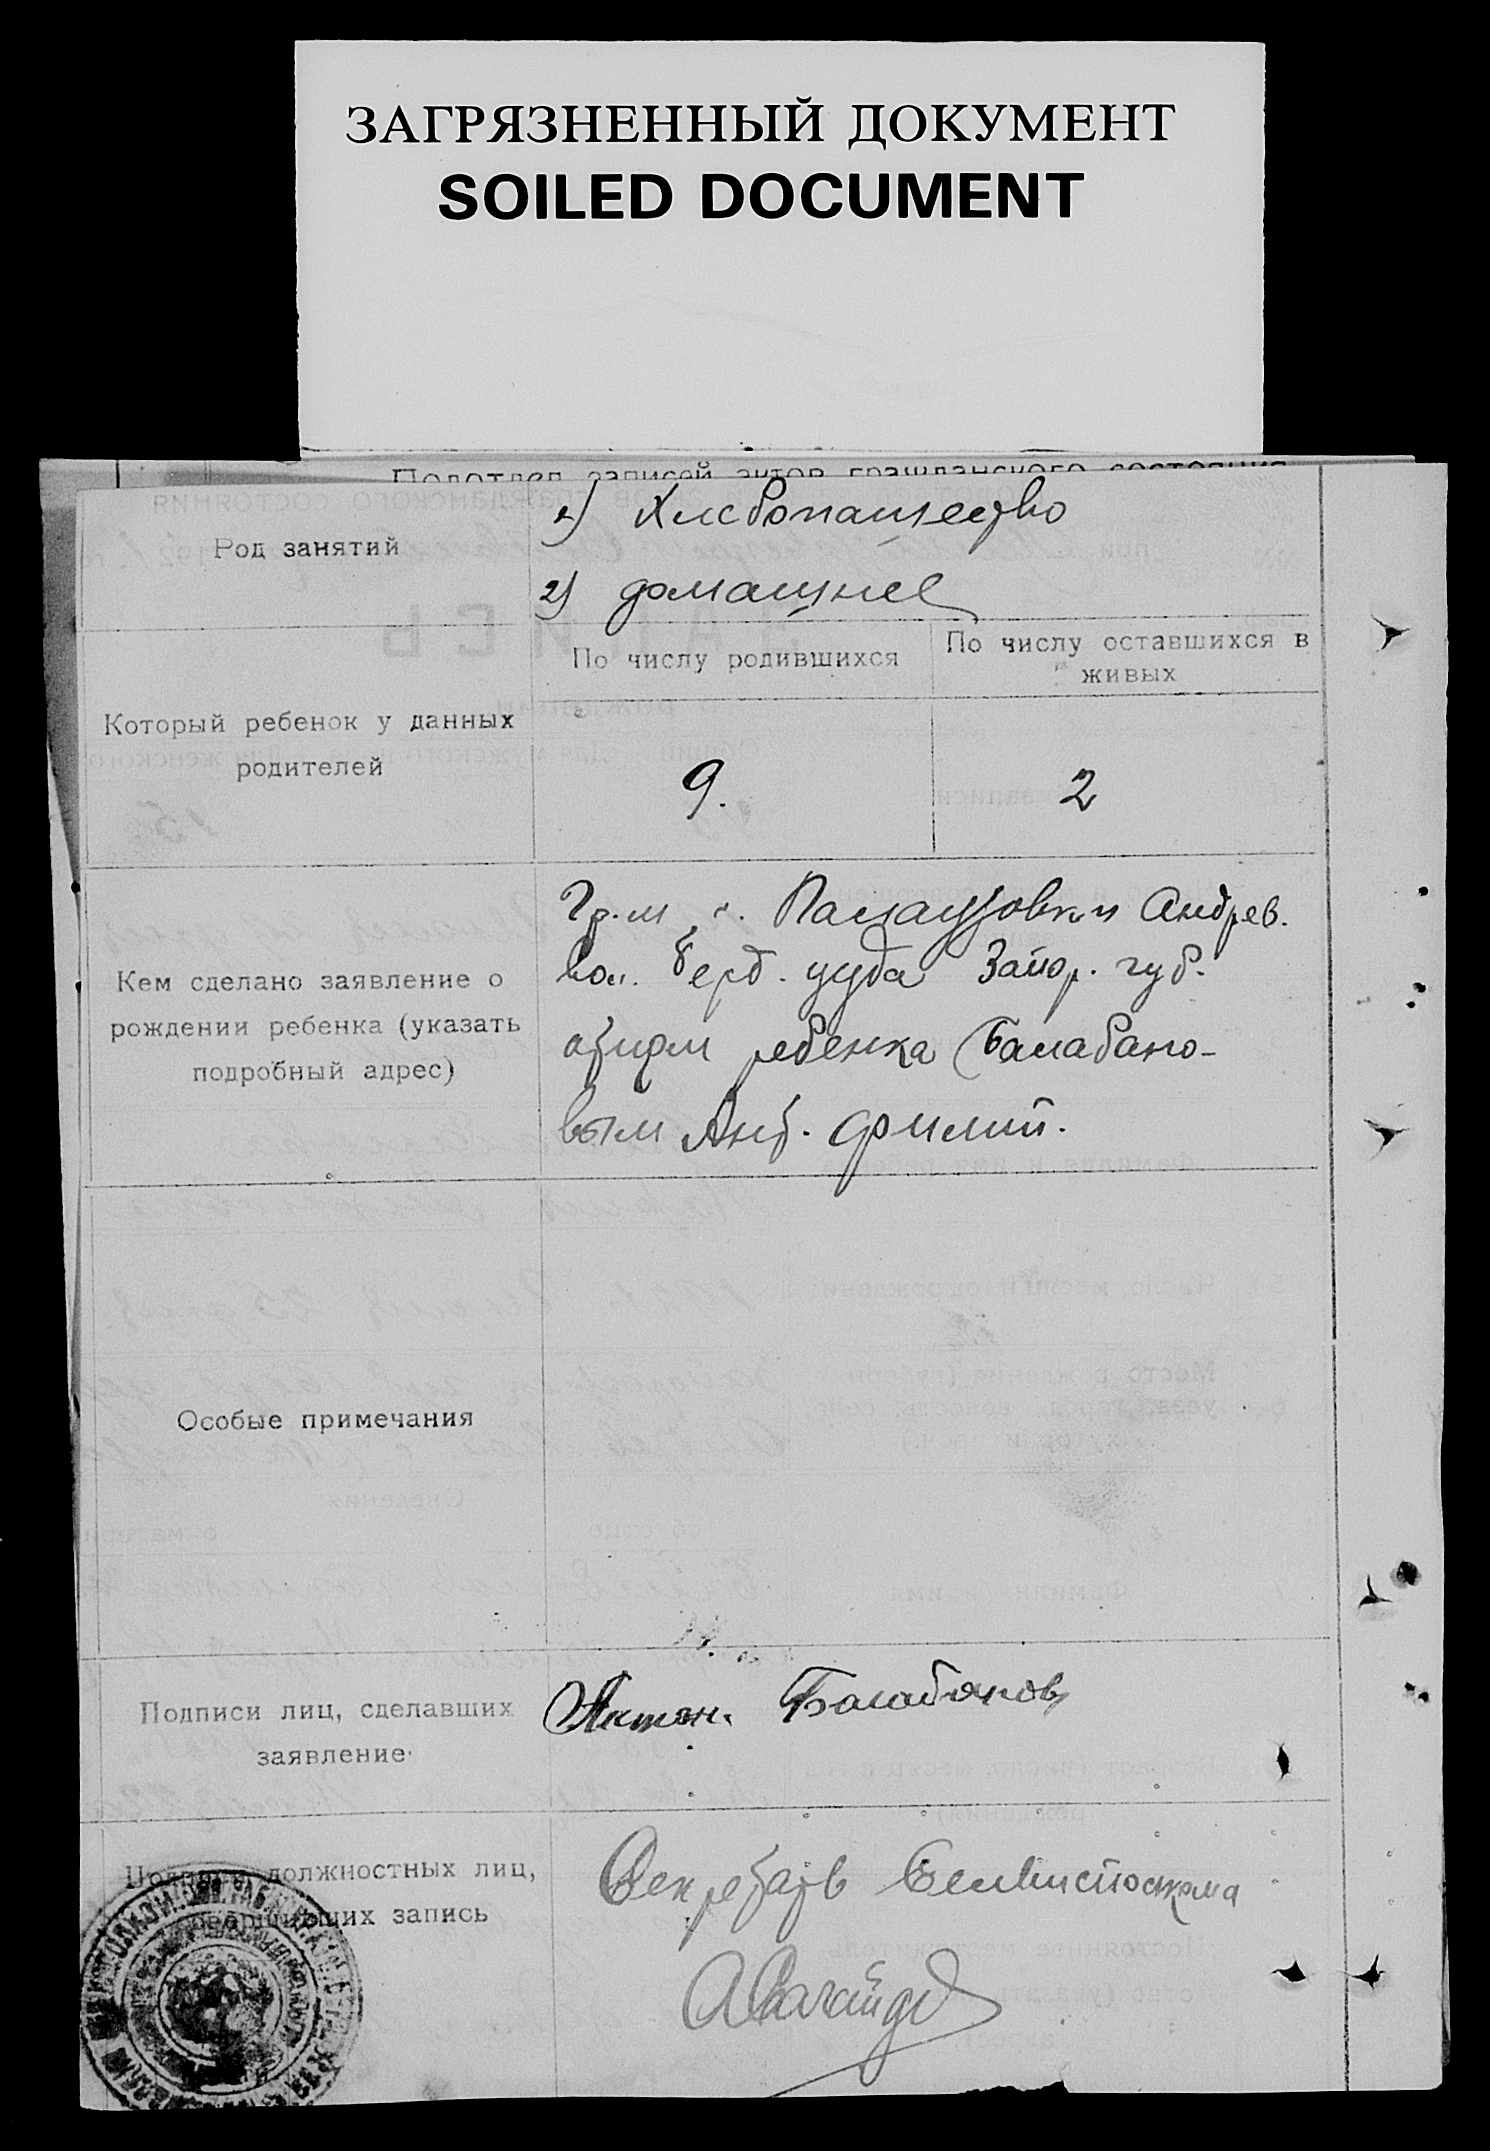 ЗАГРЯЗНЕННЫЙ ДОКУМЕНТ
SOILED DOCUMENT
Подотдел записей актов гражданского состояния
Род занятий
1) Хлебопашество
2) домашнее
Который ребенок у данных
родителей
По числу родившихся
По числу оставшихся в
живых
9.
2
Кем сделано заявление о
рождении ребенка (указать
подробный адрес)
Гр-м с. Андрев.
вол. Берд. уезда Запор. губ.
отцом ребенка Балабано-
вым Ант. Филип.
Особые примечания
Подписи лиц, сделавших
заявление
Антон. Балабанов
Подписи должностных лиц,
совершивших запись
Секретарь